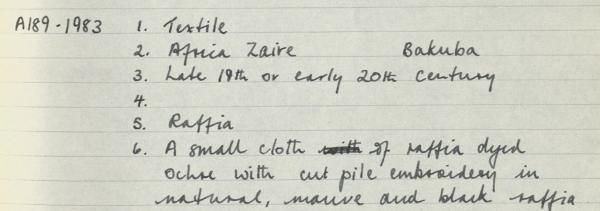 A189-1983 1. Textile
2. Africa Zaire Bakuba
3. Late 19th or early 20th century
4.
5. Raffia
6. A small cloth with of raffia dyed
ochre with cut pile embroidery in
natural, mauve and black raffia